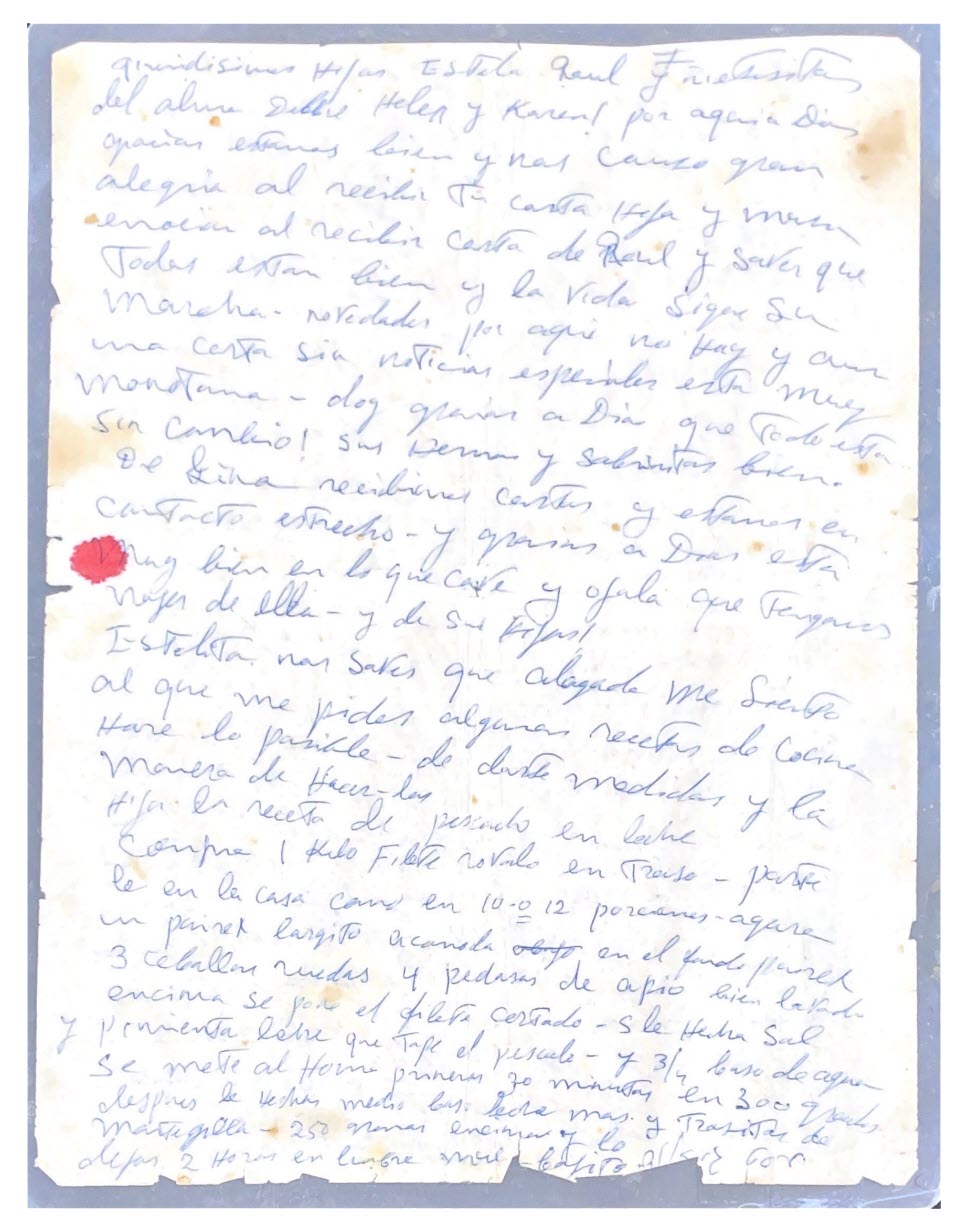 queridisimos Hijos Estela Raul y nietesitas
del alma Debbie Helen y Karen! por aqui a Dios
gracias estamos bien y nos causo gran
alegria al recibir Tu carta Hija y mucha
emocion al recibir carta de Raul y Saver que
Todos estan bien y la vida Sigue Su
Marcha - novedades por aqui no Hay y aun
una carta sin noticias espesiales esta muy
Monotona - doy gracias a Dios que Todo esta
Sin Cambio! sus Herman y Sobrinitos bien.
De Lina recibimos cartas y estamos en
contacto estrecho - y grasias a Dios esta
Muy bien en lo que cave y ojala que Tengamos
de ella - y de sus Hijos!
Estelita nos Saves que alagada me Siento
al que me pides algunas recetas de Cocina
Hare lo posible - de darte medidas y la
Manera de Hacer-los
Hija la receta de pescado en leche
Compra 1 Kilo Filete rovalo en Traso - parte
le en la casa como en 10-o 12 porciones - agara
un pairex largito acomoda en el fondo pairex
3 ceballas ruedas y pedasos de apio bien lavado
encima se pone el filete cortado - S le Hecha Sal
y pimienta leche que Tape el pescado - y 3/4 baso de agua
Se mete al Horno primeros 30 minutos en 300 grados
despues le Hechas medio baso leche mas y Trasitos de
Mantequilla - 250 gramos encima y lo
dejas 2 Horas en lumbre - bajito